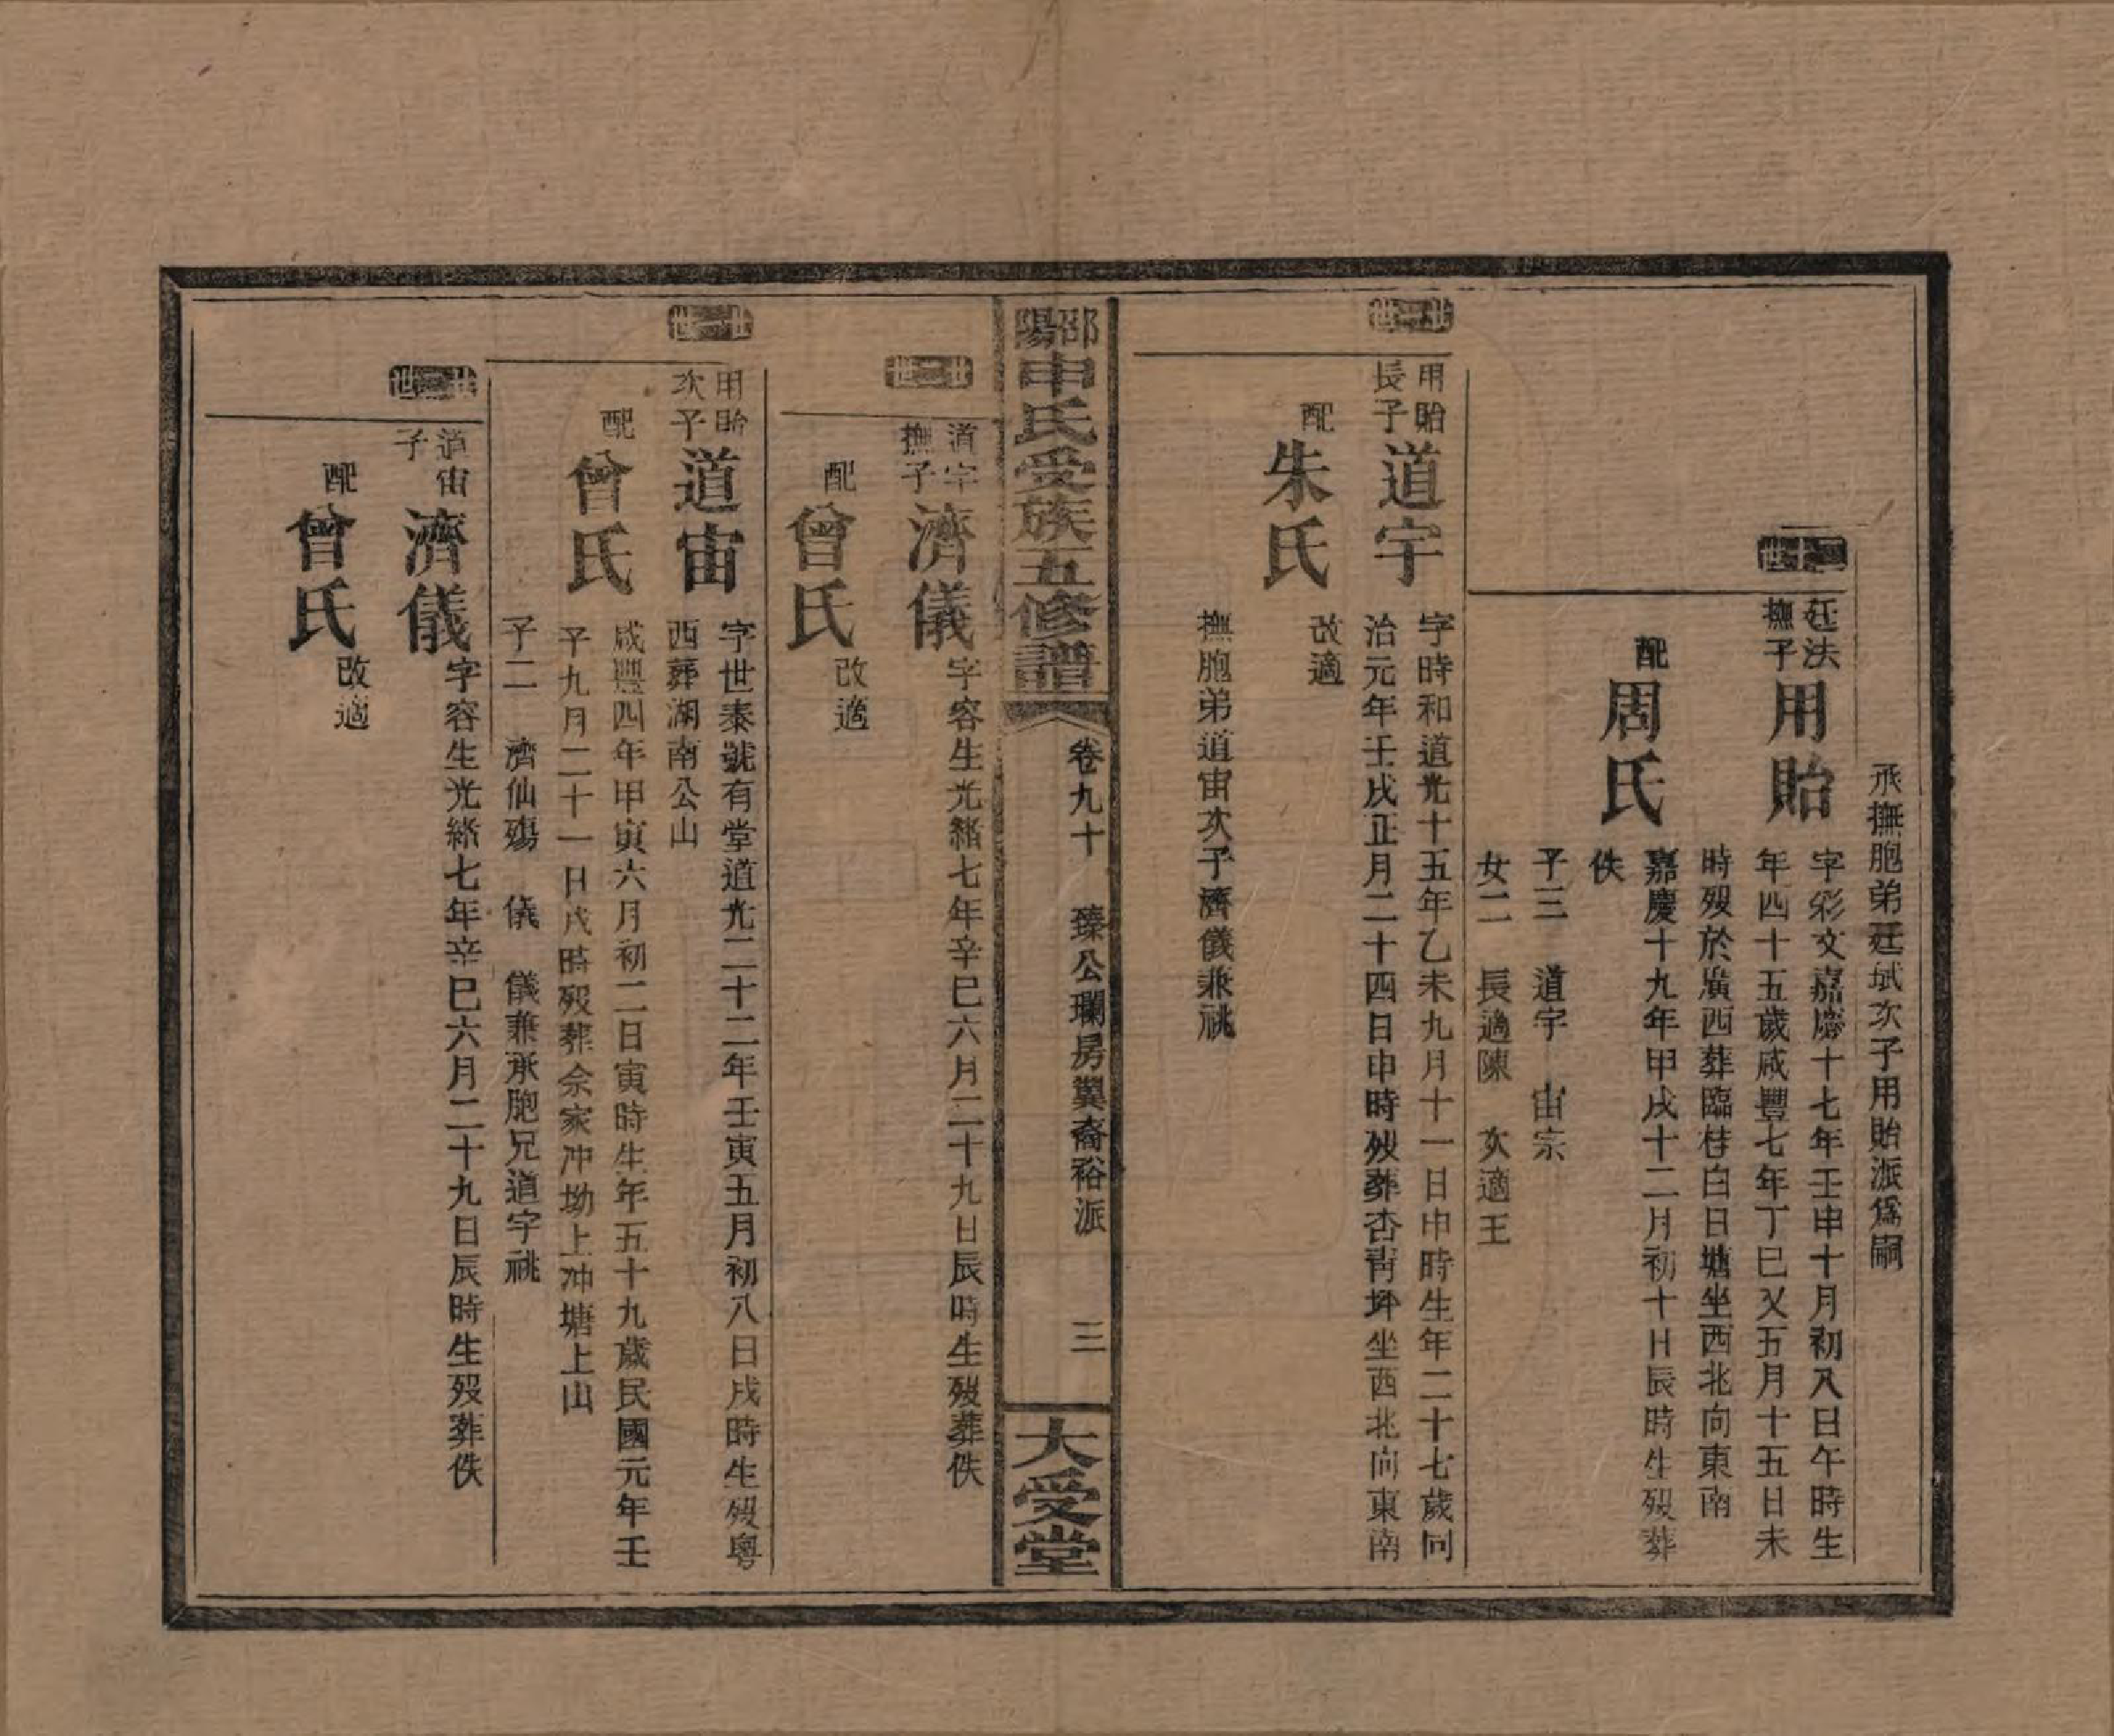 承撫胞弟廷斌次子用貽派爲嗣
二十世
廷法撫子
用貽
字彩文嘉慶十七年壬申十月初八日午時生
年四十五歲咸豐七年丁巳又五月十五日未
時歿於廣西葬臨桂白日塘坐西北向東南
配
周氏
嘉慶十九年甲戌十二月初十日辰時生歿葬
佚
子三 道宇 宙宗
女二 長適陳 次適王
廿一世
用貽長子
道宇
字時和道光十五年乙未九月十一日申時生年二十七歲同
治元年壬戌正月二十四日申時歿葬杏青坪坐西北向東南
配
朱氏
改適
撫胞弟道宙次子濟儀兼祧
邵陽申氏受族五修譜
卷九十 臻公瓓房翼裔裕派 三
大受堂
廿二世
道宇撫子
濟儀
字容生光緒七年辛巳六月二十九日辰時生歿葬佚
配
曾氏
改適
廿一世
用貽次子
道宙
字世泰號有堂道光二十二年壬寅五月初八日戌時生歿粵
西葬湖南公山
配
曾氏
咸豐四年甲寅六月初二日寅時生年五十九歲民國元年壬
子九月二十一日戌時歿葬佘家冲坳上冲塘上山
子二 濟仙殤 儀 儀兼承胞兄道宇祧
廿二世
道宙子
濟儀
字容生光緒七年辛巳六月二十九日辰時生歿葬佚
配
曾氏
改適